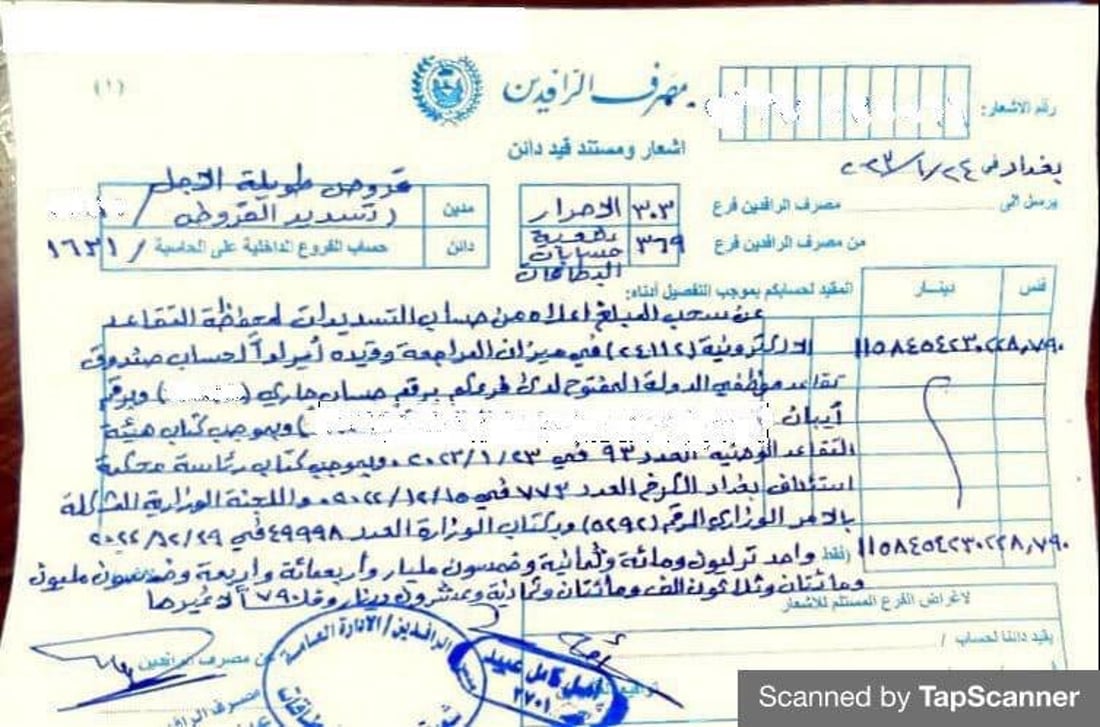 (١)
مصرف الرافدين
رقم الاشعار:
اشعار ومستند قيد دائن
بغداد في ٢٠٢٣/١/٢٤
يرسل الى مصرف الرافدين فرع
٣٠٣ الاحرار
مدين
قروض طويلة الاجل
/ تسديد القروض
من مصرف الرافدين فرع
٣٦٩ حسابات البطاقات
دائن
حساب الفروع الداخلية على الحاسبة / ١٦٣١
فلس
دينار
المقيد لحسابكم بموجب التفصيل أدناه:
عن سحب المبلغ اعلاه من حساب التسديدات لمحفظة التقاعد
١١٥٨٤٥٤٢٣٠٢٢٨,٧٩٠
الالكترونية (٢٤١١٢) في ميزان المراجعة وقيده أميراداً لحساب صندوق
تقاعد موظفي الدولة المفتوح لدى فرعكم برقم حساب جاري ( ) وبرقم
آيبان ( ) وبموجب كتاب هيئة
التقاعد الوطنية العدد ٩٣ في ٢٠٢٣/١/٢٣ وبموجب كتاب رئاسة محكمة
استئناف بغداد الكرخ العدد ٧٧٣ في ٢٠٢٢/١٢/١٥ واللجنة الوزارية المشكلة
بالامر الوزاري المرقم (٥٢٩٢) وبكتاب الوزارة العدد ٤٩٩٩٨ في ٢٠٢٢/١٢/٢٩
١١٥٨٤٥٤٢٣٠٢٢٨,٧٩٠
(فقط واحد ترليون ومائة وثمانية وخمسون مليار وأربعمائة واربعة وخمسون مليون
ومائتان وثلاثون الف ومائتان وثمانية وعشرون دينار و ٧٩٠ لا غيرها
لاغراض الفرع المستلم للاشعار
يقيد دائنا لحساب /
عن مصرف الرافدين
مصرف الرافدين / الادارة العامة
كامل عبيد
٢٧٠١
Scanned by TapScanner